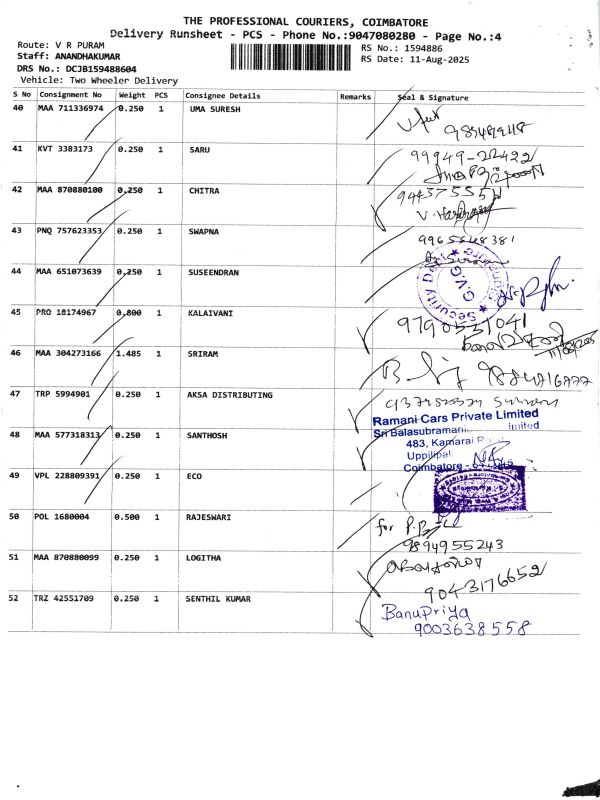 THE PROFESSIONAL COURIERS, COIMBATORE
Delivery Runsheet - PCS - Phone No.:9047080280 - Page No.:4
Route: V R PURAM
RS No.: 1594886
Staff: ANANDHAKUMAR
RS Date: 11-Aug-2025
DRS No.: DCJB159488604
Vehicle: Two Wheeler Delivery
S No Consignment No Weight PCS Consignee Details Remarks Seal & Signature
40 MAA 711336974 0.250 1 UMA SURESH
41 KVT 3383173 0.250 1 SARU
99949-22422
42 MAA 870880100 0.250 1 CHITRA
43 PNQ 757623353 0.250 1 SWAPNA
9965648381
44 MAA 651073639 0.250 1 SUSEENDRAN
Security Dept
G.V.G.
45 PRO 18174967 0.800 1 KALAIVANI
9790531041
46 MAA 304273166 1.485 1 SRIRAM
47 TRP 5994901 0.250 1 AKSA DISTRIBUTING
Ramani Cars Private Limited
Sri Balasubramani imited
48 MAA 577318313 0.250 1 SANTHOSH
483, Kamarai
Uppilipal
Coimbatore
49 VPL 228809391 0.250 1 ECO
50 POL 1680004 0.500 1 RAJESWARI
for
9894955243
51 MAA 870880099 0.250 1 LOGITHA
9043176652
52 TRZ 42551709 0.250 1 SENTHIL KUMAR
BanuPriya
9003638558